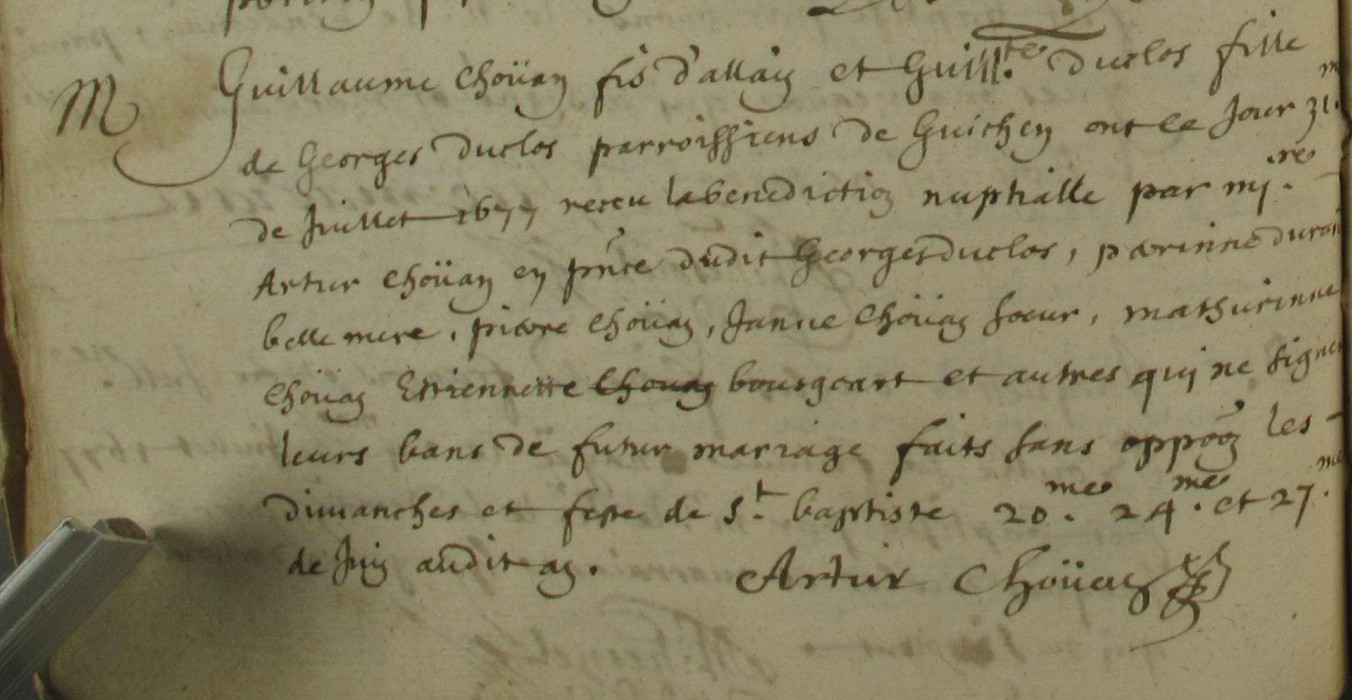 M Guillaume Choüan fis d'allain et Guill.te duclos fille
de Georges duclos parroissiens de Guichen ont le Jour 31.m
de Juillet 1677 receu la benediction nuptialle par mi.re
Artur Choüan en pnce dudit Georges duclos, perinne duran
belle mere, pierre Choüan, Janne Choüan soeur, mathurinne
Choüan Estiennette Chouan bourgeart et autres qui ne signe
leurs bans de futur mariage faits sans oppoon les
dimanches et feste de St. baptiste 20.me 24.me et 27.me
de Juin audit an. Artur Choüan